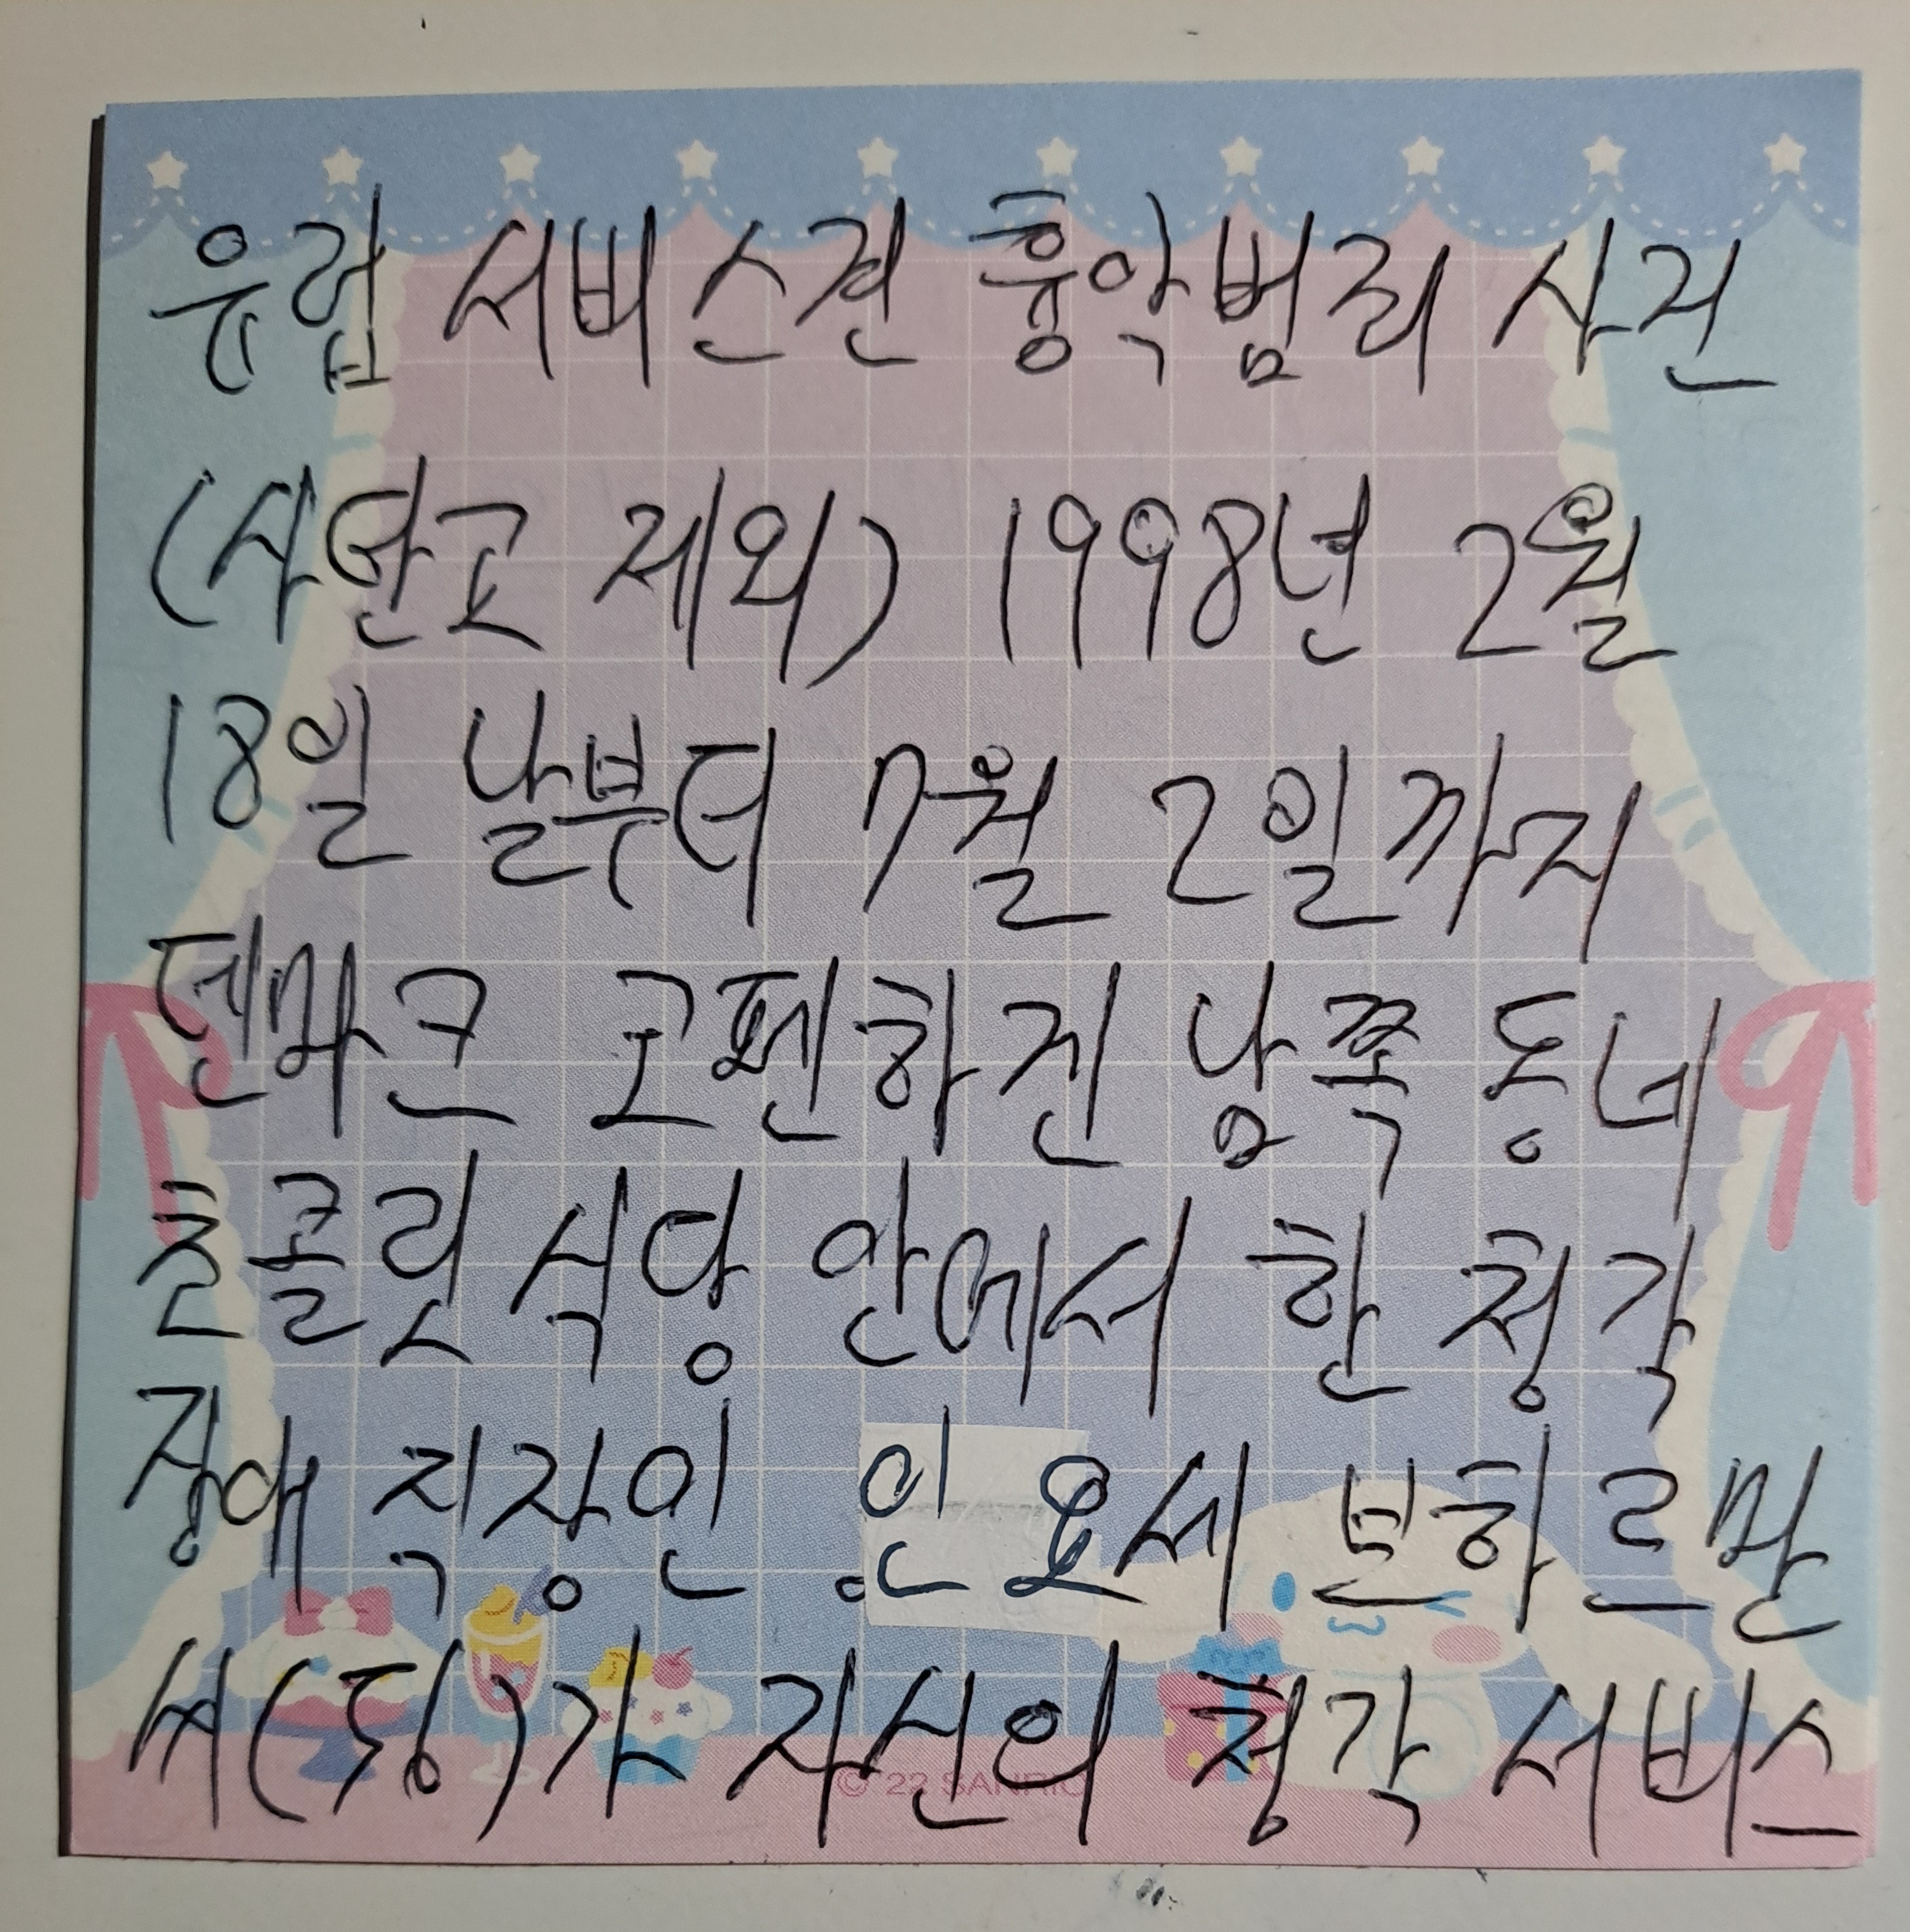 유럽 서비스견 흉악범죄 사건
(사탄고 제외) 1998년 2월
18일 날부터 7월 2일까지
덴마크 코펜하겐 남쪽 동네
초콜릿 식당 안에서 한 청각
장애 직장인 인 요세 브하르만
씨(56)가 자신의 청각 서비스
© '22 SANRIO